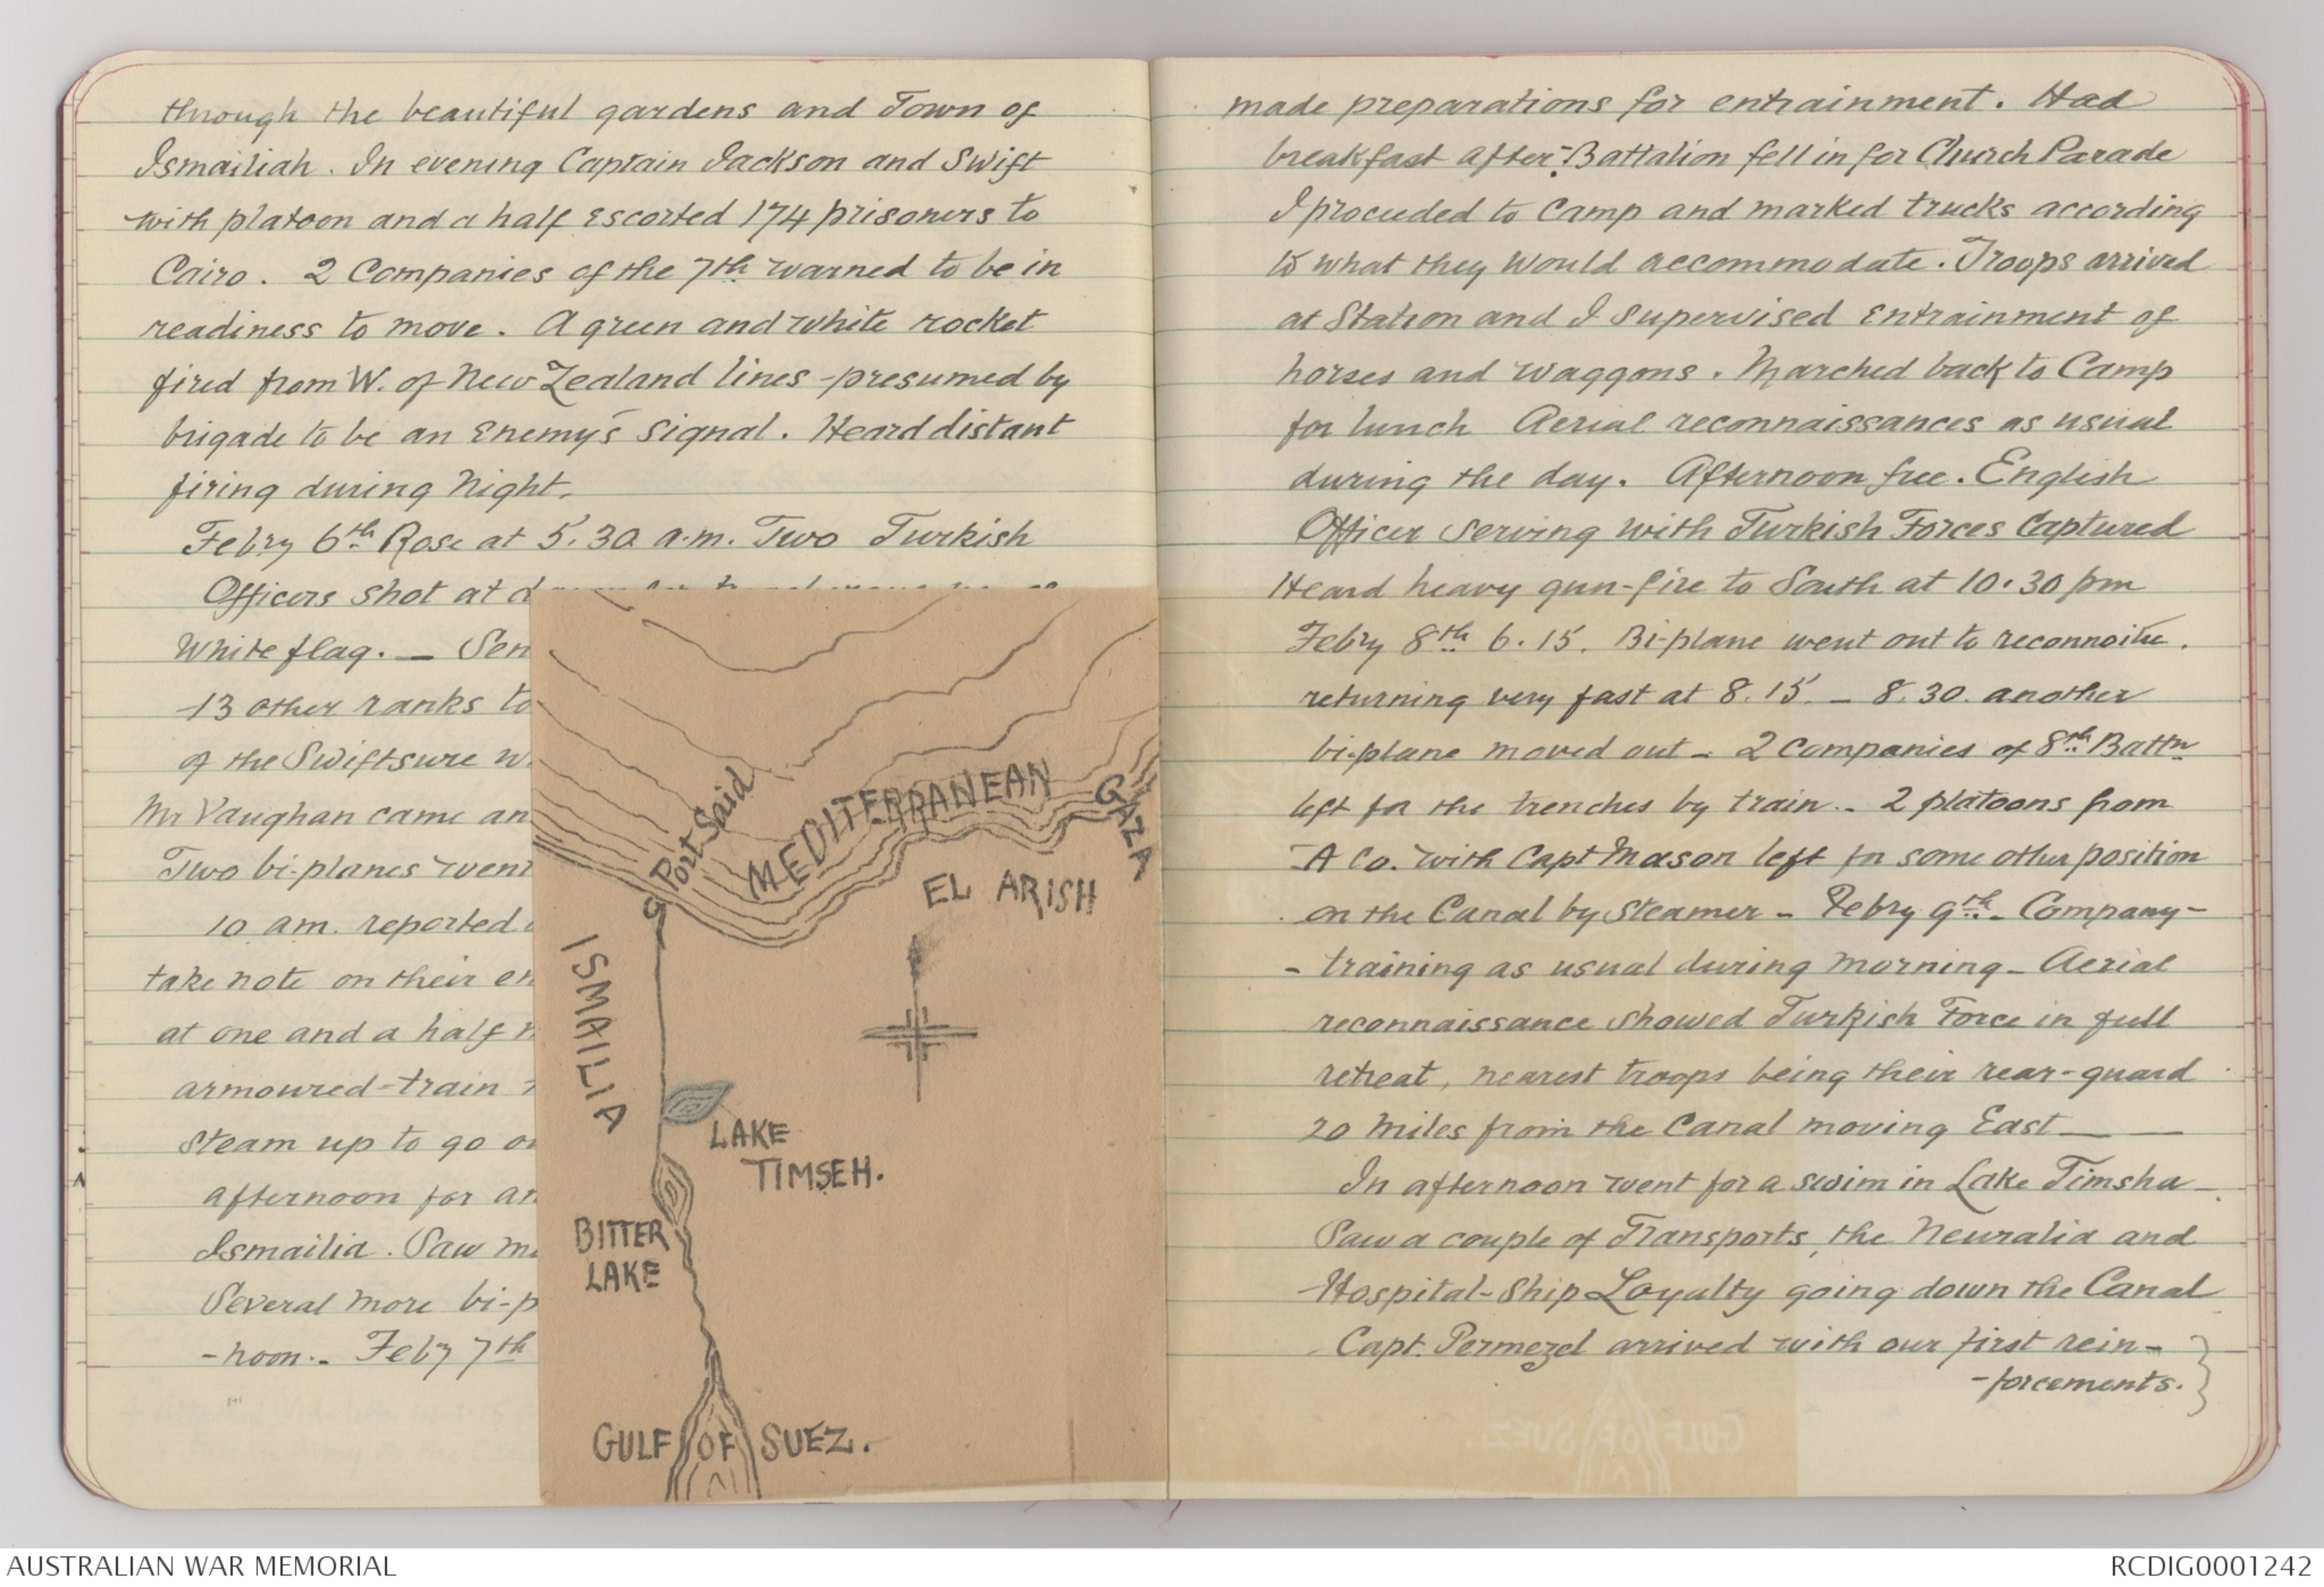 through the beautiful gardens and Town of
Ismailiah. In evening Captain Jackson and Swift
with platoon and a half escorted 174 prisoners to
Cairo. 2 Companies of the 7th warned to be in
readiness to move. A green and white rocket
fired from W. of New Zealand lines - presumed by
brigade to be an Enemy's signal. Heard distant
firing during Night.
Febry 6th Rose at 5.30 a.m. Two Turkish
Officers shot at
White flag. — Sen
13 other ranks to
of the Swiftsure
Mr Vaughan came an
Two bi-planes went
10 am. reported
take note on their en
at one and a half
armoured-train
steam up to go
afternoon for an
Ismailia. Saw
Several more bi-p
-noon.- Feby 7th
Port Said
MEDITERRANEAN
GAZA
EL ARISH
ISMAILIA
LAKE
TIMSEH.
BITTER
LAKE
GULF OF SUEZ.
made preparations for entrainment. Had
breakfast after:- Battalion fell in for Church Parade
I proceeded to Camp and marked trucks according
to what they would accommodate. Troops arrived
at Station and I supervised Entrainment of
horses and waggons. Marched back to Camp
for lunch Aerial reconnaissances as usual
during the day. Afternoon free. English
Officer serving with Turkish Forces Captured
Heard heavy gun-fire to South at 10.30 pm
Febry 8th 6.15. Bi-plane went out to reconnoitre.
returning very fast at 8.15. - 8.30. another
bi-plane moved out - 2 Companies of 8th Battn
left for the trenches by train. - 2 platoons from
A Co. with Capt Mason left for some other position
on the Canal by Steamer - Febry 9th. Company-
- training as usual during morning - Aerial
reconnaissance showed Turkish Force in full
retreat, nearest troops being their rear-guard
20 miles from the Canal moving East — —
In afternoon went for a swim in Lake Timsha -
Saw a couple of Transports, the Neuralia and
Hospital-Ship Loyalty going down the Canal
Capt. Permezel arrived with our first rein-
-forcements.
AUSTRALIAN WAR MEMORIAL
RCDIG0001242